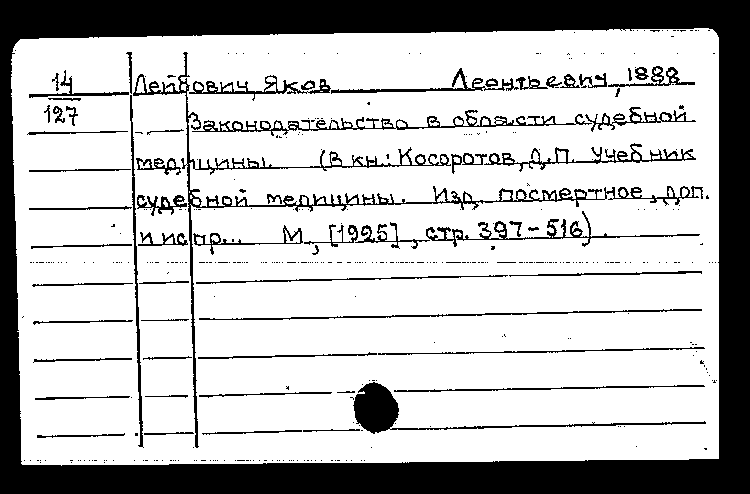 14 Лейбович, Яков Леонтьевич, 1888
127
Законодательство в области судебной
медицины. (В кн.: Косоротов, Д.П. Учебник
судебной медицины. Изд. посмертное, доп.
и испр... М., [1925], стр. 397-516).